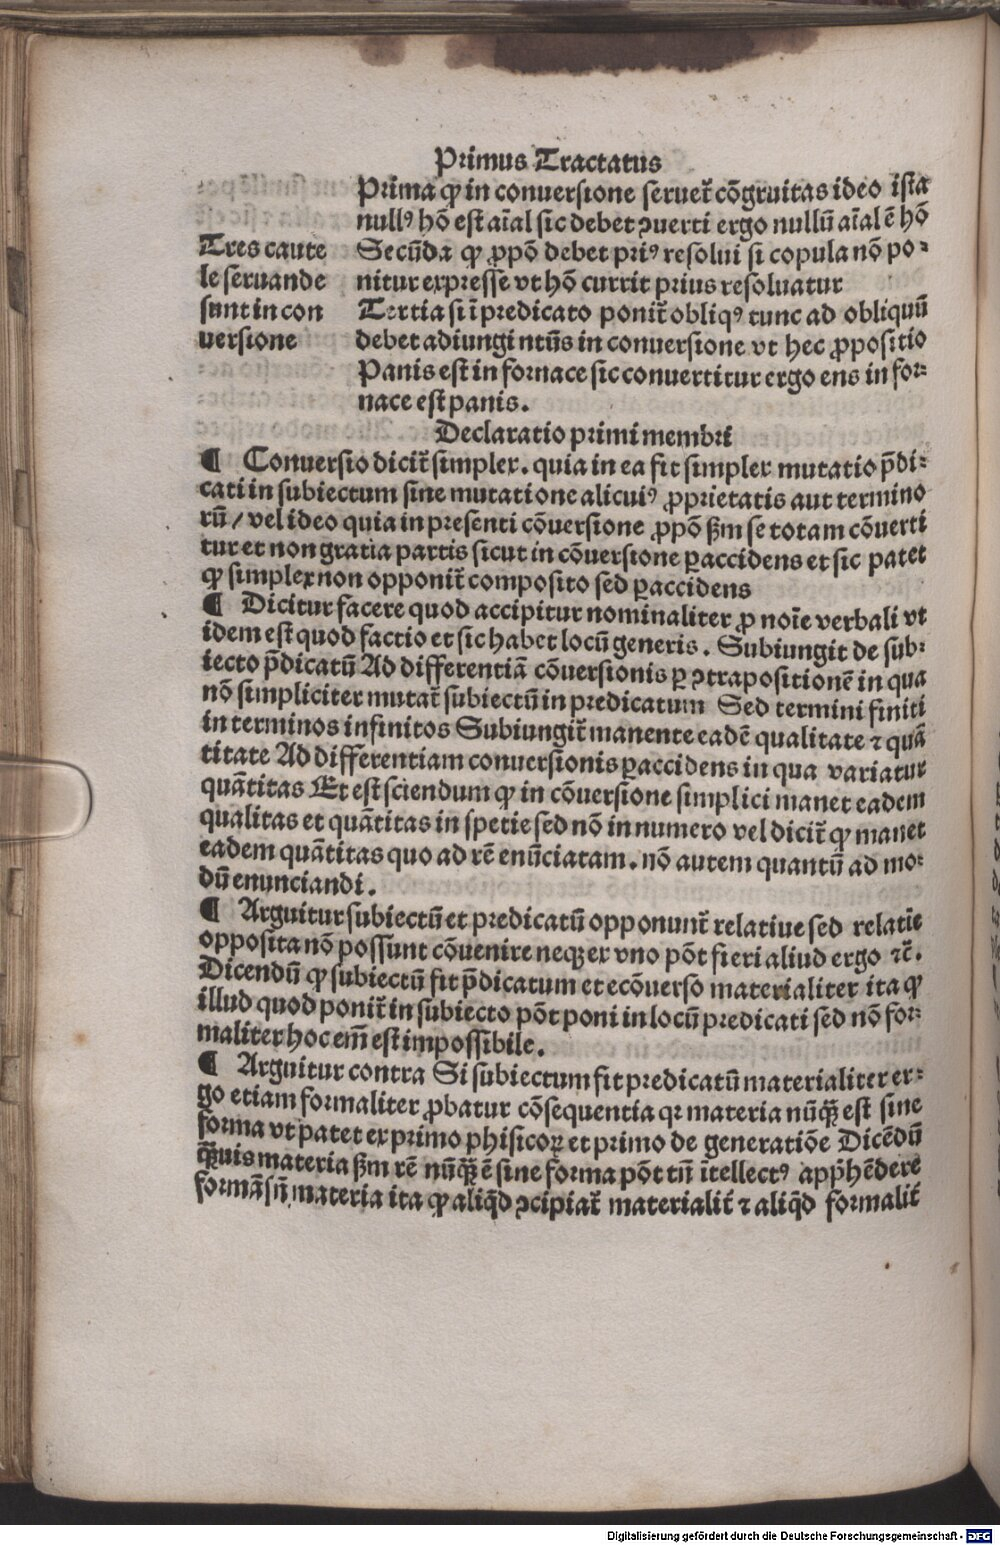 Primus Tractatus
Prima ꝙ in conuersione seruet᷑ cōgruitas ideo ista
nullꝰ hō est aīal sic debet ꝯuerti ergo nullū aīal ē hō
Tres caute
le seruande
sunt in con
uersione
Secūda ꝙ ꝓpō debet priꝰ resolui si copula nō po⸗
nitur expresse vt hō currit prius resoluatur
Tertia si ī predicato ponit᷑ obliqꝰ tunc ad obliquū
debet adiungi ntūs in conuersione vt hec ꝓpositio
Panis est in fornace sic conuertitur ergo ens in for⸗
nace est panis.
Declaratio primi membri
¶ Conuersio dicit᷑ simplex. quia in ea fit simplex mutatio p̄di⸗
cati in subiectum sine mutatione alicuiꝰ ꝓprietatis aut termino
rū / vel ideo quia in presenti cōuersione ꝓpō ẜm se totam cōuerti
tur et non gratia partis sicut in cōuersione ꝑ accidens et sic patet
ꝙ simplex non opponit᷑ composito sed ꝑ accidens
¶ Dicitur facere quod accipitur nominaliter ꝓ noīe verbali vt
idem est quod factio et sic habet locū generis. Subiungit de sub⸗
iecto p̄dicatū Ad differentiā cōuersionis ꝑ ꝯtrapositionē in qua
nō simpliciter mutat᷑ subiectū in predicatum Sed termini finiti
in terminos infinitos Subiungit᷑ manente eadē qualitate ⁊ quā
titate Ad differentiam conuersionis ꝑ accidens in qua variatur
quātitas Et est sciendum ꝙ in cōuersione simplici manet eadem
qualitas et quātitas in spetie sed nō in numero vel dicit᷑ ꝙ manet
eadem quātitas quo ad rē enūciatam. nō autem quantū ad mo⸗
dū enunciandi.
¶ Arguitur subiectū et predicatū opponunt᷑ relatiue sed relatie
opposita nō possunt cōuenire neqꝫ ex vno pōt fieri aliud ergo ⁊c̄.
Dicendū ꝙ subiectū fit p̄dicatum et ecōuerso materialiter ita ꝙ
illud quod ponit᷑ in subiecto pōt poni in locū predicati sed nō for⸗
maliter hoc em̄ est impossibile.
¶ Arguitur contra Si subiectum fit predicatū materialiter er⸗
go etiam formaliter ꝓbatur cōsequentia qꝛ materia nūqꝫ̄ est sine
forma vt patet ex primo phisicoꝝ et primo de generatiōe Dicēdū
qꝫ̄uis materia ẜm rē nūqꝫ̄ ē sine forma pōt tn̄ ītellectꝰ app̄hēdere
formā sn̄ materia ita ꝙ aliq̄d ꝯcipiat᷑ materialit᷑ ⁊ aliq̄d formalit᷑
Digitalisierung gefördert durch die Deutsche Forschungsgemeinschaft - DFG